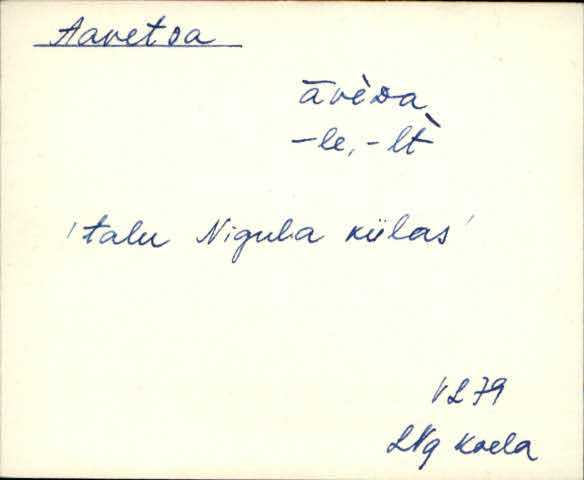 Aavetsa
āvèᴅa
-le, -lt̀
'talu Nigula külas'
VL79
LNg Koela